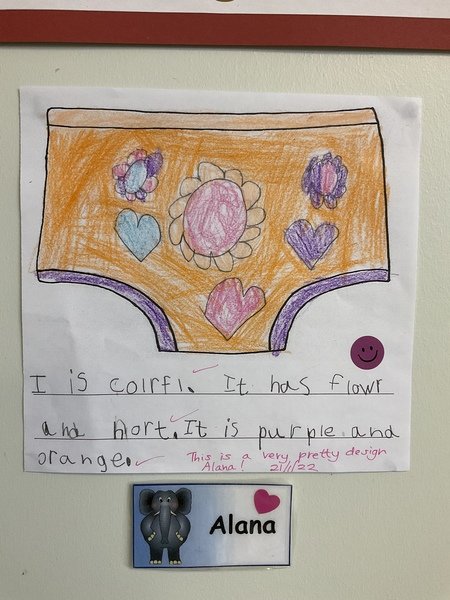 I is colrfl. It has flowr
and hort. It is purple and
orange. This is a very pretty design
Alana! 21/1/22
Alana